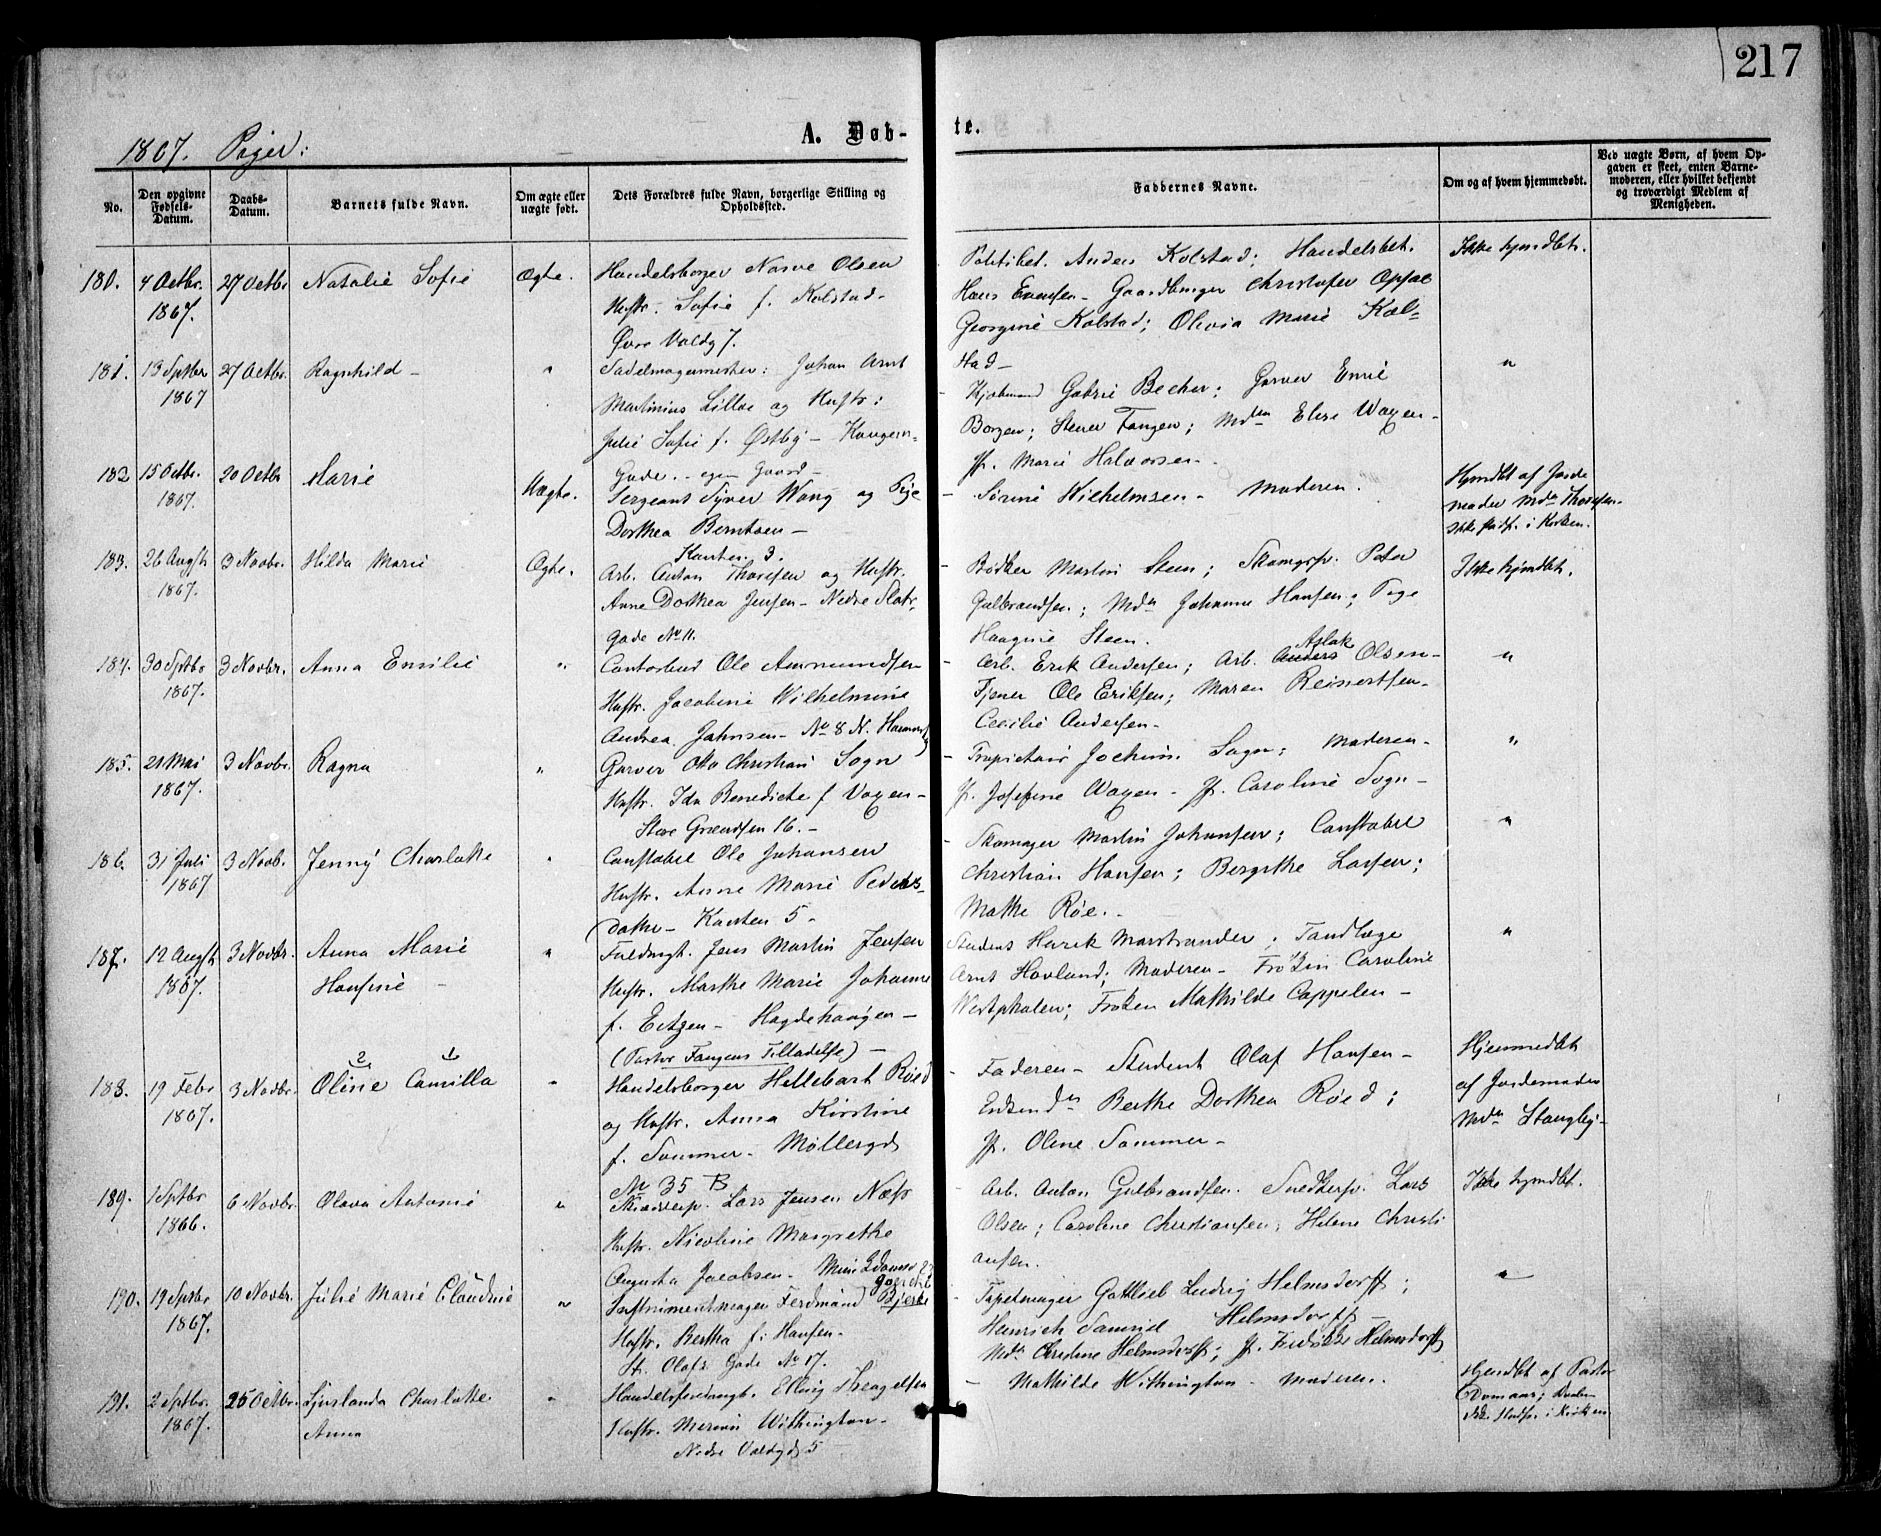 217
1867. Piger:
A. Døb-
te.
No.
Den opgivne Fødsels-Datum.
Daabs-Datum.
Barnets fulde Navn.
Om ægte eller uægte født.
Dets Forældres fulde Navn, borgerlige Stilling og Opholdssted.
Faddernes Navne.
Om og af hvem hjemmedøbt.
Ved uægte Børn, af hvem Opgaven er skeet, enten Barnemoderen, eller hvilket bekjendt og troværdigt Medlem af Menigheden.
180. 4 Octbr. 1867. 27 Octbr Natalie Sofie Ægte.
Handelsborger Narve Olsen
Hustr. Sofie f. Kolstad-
Øvre Voldg 7.
Politibet. Anders Kolstad; Handelsbet.
Hans Evensen- Gaardbruger Christofer Opsal
Georgine Kolstad; Olivia Marie Kol=
stad-
Ikke hjmdbt.
181. 13 Septbr 1867 27 Octbr. Ragnhild - "
Sadelmagermester: Johan Arnt
Martinius Lilloe og Hustr:
Julie Sofie f. Østby- Kongens-
Gade.- egen Gaard-
- Kjøbmand Gabriel Becher; Garver Emil
Borgen; Stener Fangen; Mdm Elise Waxen-
Jfr. Marie Halvorsen-
"
182 15 Octbr. 1867. 20 Octbr Marie Uægte.
Sergeant Syver Wang og Pige
Dorthea Berntsen-
Kanten 3.
- Sørine Wilhelmsen- Moderen.
Hjmdbt af Jorde
moder Mdm Thoresen.
Ikke stadf. i Kirken.
183. 26 Augst 1867. 3 Novbr. Hilda Marie Ægte.
Arb. Anton Thoresen og Hustr.
Anne Dorthea Jensen- Nedre Slots
gade No 11.
- Bødker Martin Steen; Skomgrsv. Peter
Gulbrandsen; Mdm Johanne Hansen; Pige
Haagine Steen.
Ikke hjmdbt.
184. 30 Septbr 1867. 3 Novbr. Anna Emilie "
Contorbud Ole Ammundsen
Hustr. Jacobine Wilhelmine
Andrea Jahnsen- No 8 N.
- Arb. Erik Andersen; Arb. Anders Aslak Olsen-
Tjener Ole Eriksen; Maren Reinertsen-
Cecilie Andersen-
"
185. 21 Mai 1867. 3 Novbr. Ragna "
Garver Otto Christian Sogn
Hustr. Ida Benedicte f Vaxen-
Store Grændsen 16.-
- Proprietair Jochim Sogn; Moderen-
Jfr. Josefine Waxen- Jfr. Caroline Sogn-
"
186. 31 Juli 1867 3 Novb. Jenny Charlotte "
Constabel Ole Johansen
Hustr. Anne Marie Peders-
datter- Kanten 5-
Skomager Martin Johansen; Constabel
Christian Hansen; Bergithe Larsen;
Mathe Røe.-
"
187. 12 Augst 1867. 3 Novbr. Anna Marie Hansine - "
Fuldmgt. Jens Martin Jensen
Hustr. Marthe Marie Johanne
f. Eitzen- Hagdehaugen-
(Pastor Fangens Tilladelse)-
Student Harek Marstrander; Tandlæge
Arnt Hovland; Moderen- Frøken Caroline
Westphalen; Frøken Mathilde Cappelen-
"
188. 19 Febr 1867. 3 Novbr. Oline 2 Camilla 1 "
Handelsborger Hellebart Røed
og Hustr. Anna Kirstine
f. Sommer- Møllergd
No 35 B
- Faderen- Student Olaf Hansen-
Berthe Dorthea Røed;
Jfr. Oline Sommer-
Hjemmedbt
af Jordemoder
Mdm Stangeby-
189. 1 Septbr 1866. 6 Novbr. Olava Antonie "
Lars Jensen Næss
Hustr. Nicoline Margrethe
Augusta Jacobsen-
- Arb. Anton Gulbrandsen. Snedkersv. Lars
Olsen; Caroline Christiansen; Helene Christi
ansen.
Ikke hjmdbt.
190. 19 Septbr 1867. 10 Novbr. Julie Marie Claudine "
Instrumentmager Ferdinand Bjerke
Hustr. Bertha f: Hansen-
St. Olafs Gade No 17.
- Tapetmager Gottlieb Ludvig Helmsdorff;
Heinrich Samuel Helmsdorff-
Mdm Christine Helmsdorff; Jfr. Fredrikke Helmsdorff
"
191. 2 Septbr. 1867. 25 Octbr. Charlotte Anna "
Handelsfuldmgt. Elling
Hustr. Withington-
Nedre Voldgd 5
- Mathilde Withington- Moderen.
Hjmdbt af Pastor
Domaas; Daaben
ikke stadf. i Kirken